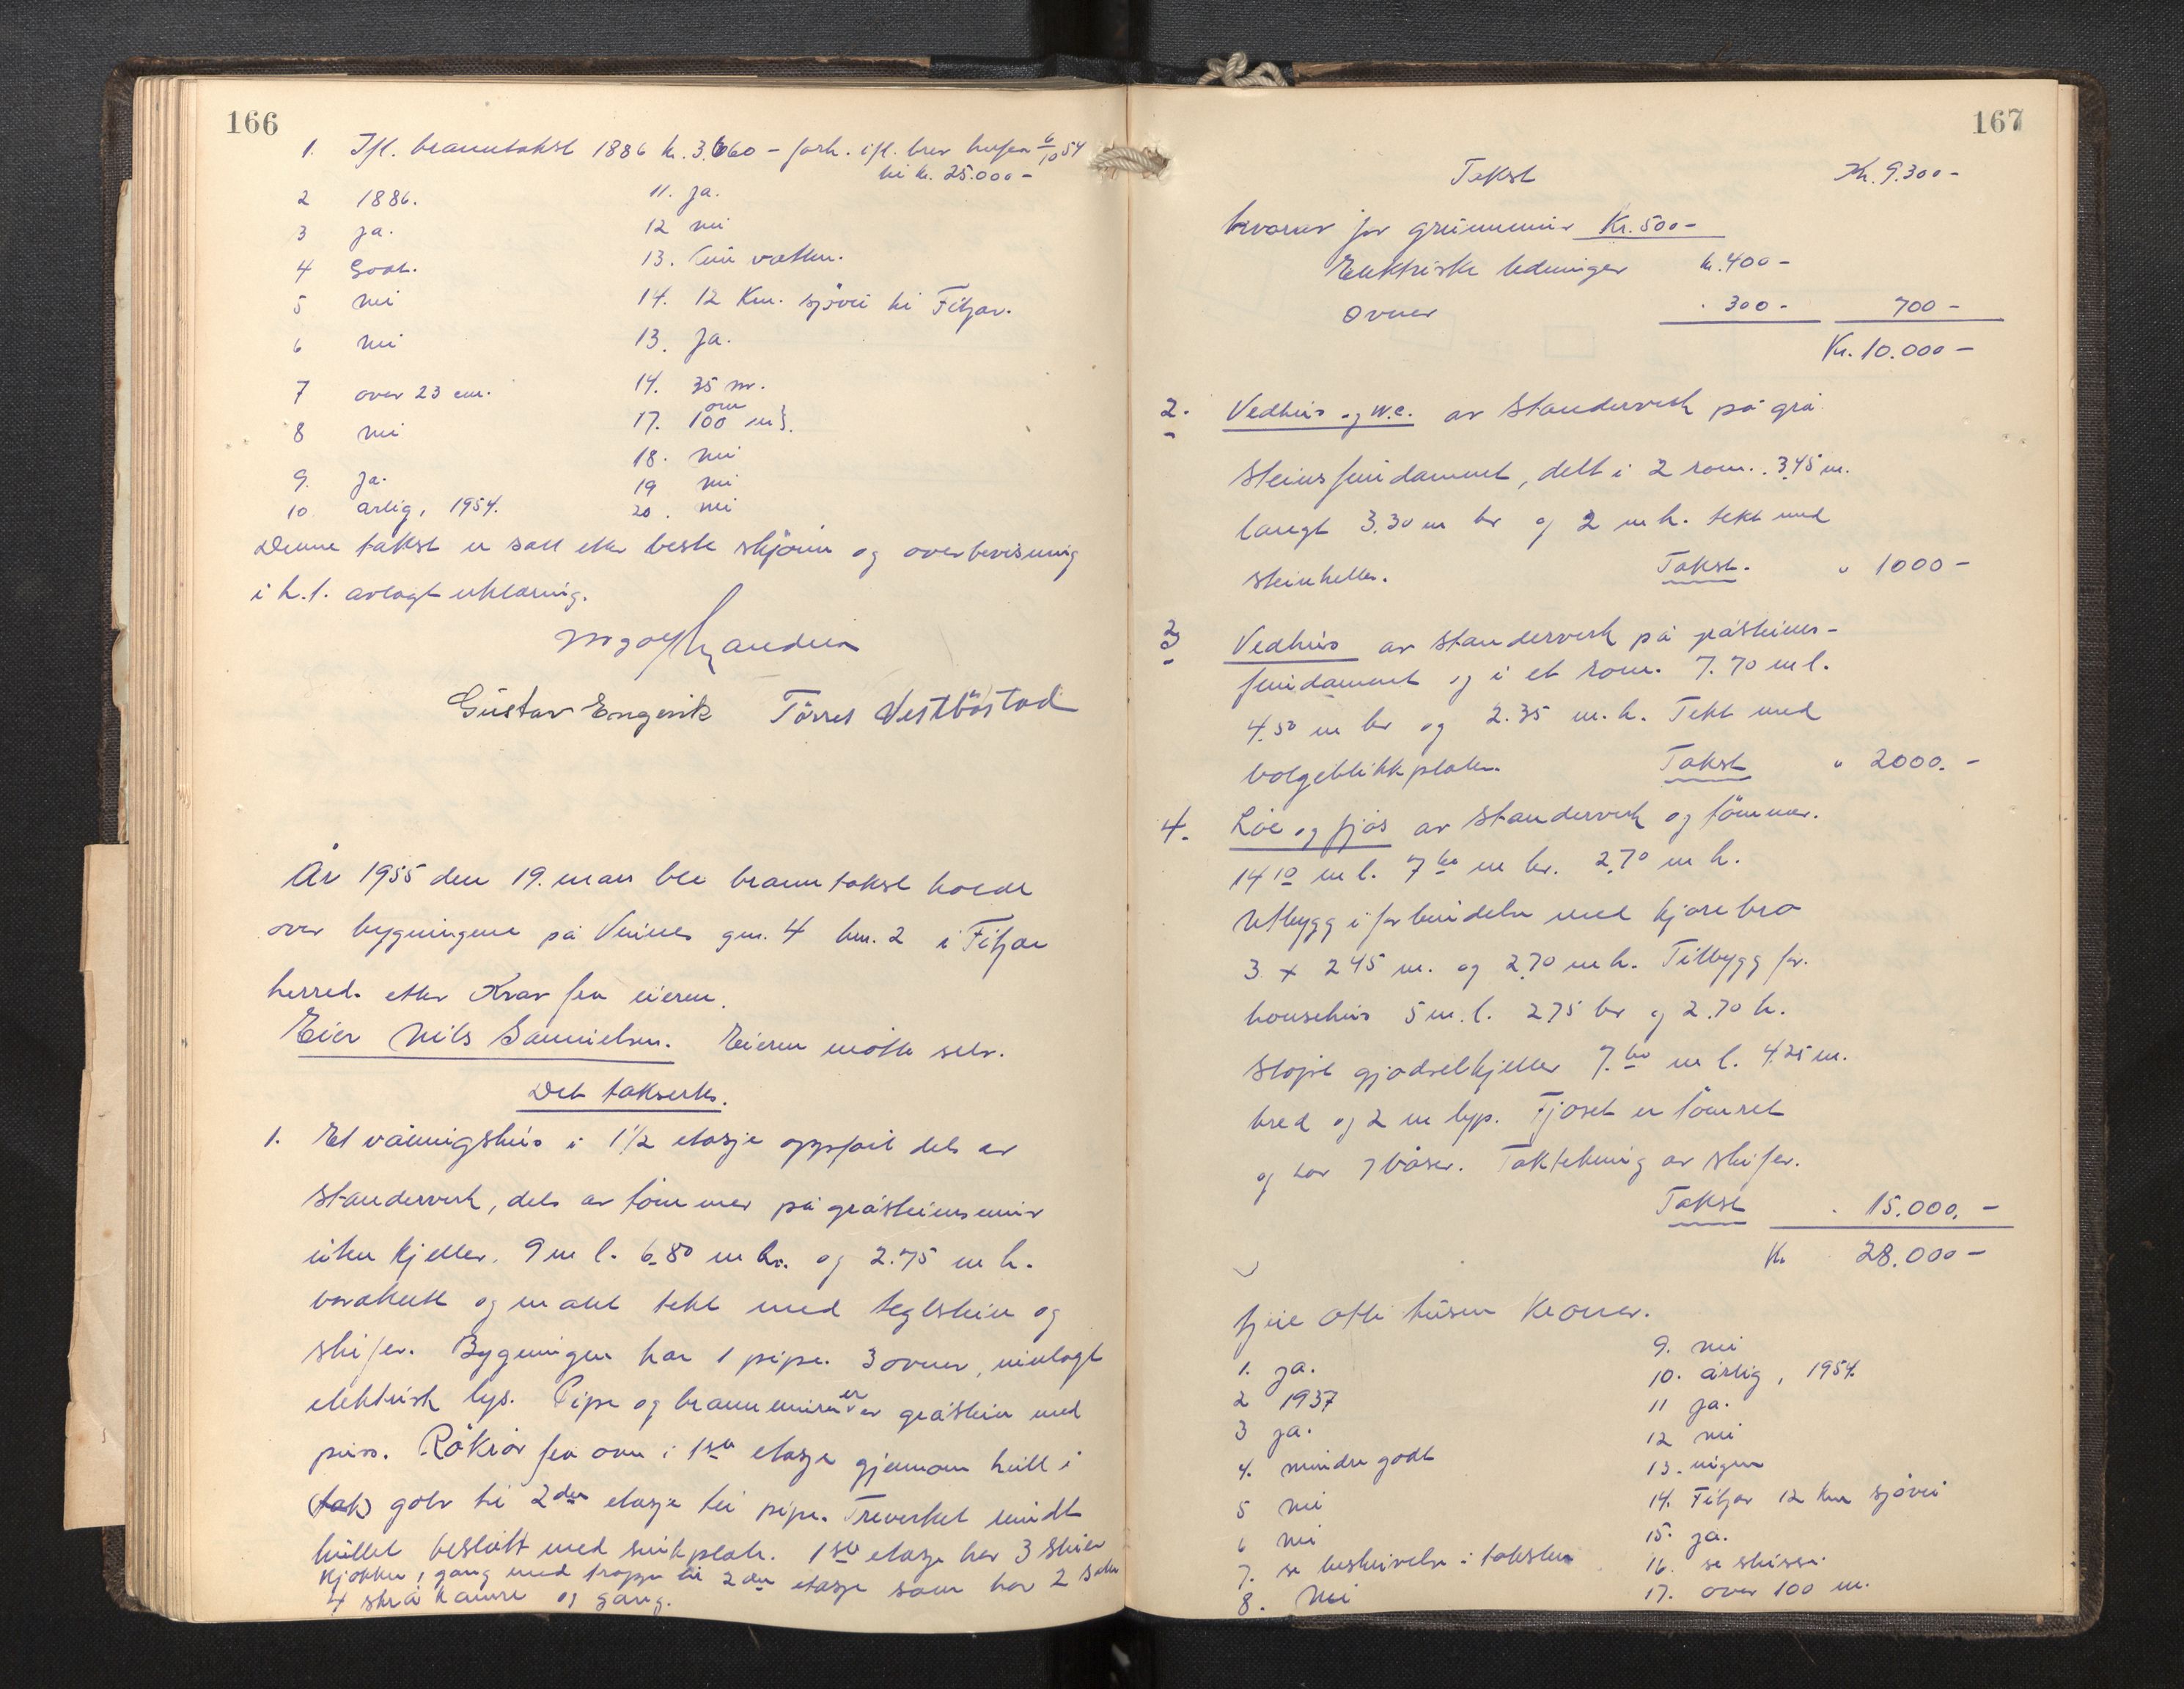 166
1. Ifl. branntakst 1886 kr. 3.660 - forh. ifl. brev 6/10 54
til kr. 25.000 -
2 1886.
3 ja.
4 Godt.
5 nei
6 nei
7 over 23 cm.
8 nei
9. Ja.
10 årlig, 1954.
11. ja.
12 nei
13. vatten.
14. 12 Km. sjövei til Fitjar.
13. Ja.
14. 35 m.
17. over 100 m}.
18. nei
19 nei
20. nei
Denne takst er satt etter beste skjönn og overbevisning
i h.t. avlagt erklæring.
Gustav Engevik Törres Vestböstad
År 1955 den 19. mars ble branntakst holdt
over bygningene på Veines gnr. 4 bnr. 2 i Fitjar
herred. etter Krav fra eieren.
Eier Nils Danielsen. Eieren møtte selv.
Det takseres.
1. Et våningshus i 1 1/2 etasje oppført dels av
standerverk, dels av tömmer på gråsteinsmur
uten kjeller. 9 m l. 6.80 m br. og 2.75 m h.
bordkledt og malt tekt med teglstein og
skifer. Bygningen har 1 pipe. 3 ovner, innlagt
elektrisk lys. Pipe og brannmuren er av gråstein med
puss. Rökrör fra ovn i 1ste etasje gjennom hull i
(tak) golv til 2den etasje til pipe. Treverket rundt
hullet beslått med sinkplate. 1ste etasje har 3 stuer
kjøkken, gang med trapp til 2den etasje som har 2 
4 skråkamre og gang.
167
Takst Kr. 9.300 -
hvorav for grunnmur Kr. 500 -
Elektriske ledninger kr. 400 -
Ovner . 300 - 700 -
Kr. 10.000 -
2. Vedhus og w.c. av standerverk på grå
steinsfundament, delt i 2 rom. 3.45 m.
langt 3.30 m br og 2 m h. tekt med
steinheller. Takst. " 1000 -
3 Vedhus av standerverk på gråsteins-
fundament og i et rom. 7.70 m l.
4.50 m br og 2.35 m. h. Tekt med
bølgeblikkplater. Takst " 2000. -
4. Löe og fjös av standerverk og tömmer.
14 10 m l. 7 60 m br. 2.70 m h.
Utbygg i forbindelse med kjørebro
3 x 2.45 m. og 2.70 m h. Tilbygg for
hønsehus 5 m. l. 2.75 br og 2.70 h.
Støpt gjødselkjeller 7.60 m l. 4.25 m.
bred og 2 m dyp. Fjøset er tömret
og har 7 båser. Taktekning av skifer.
Takst . 15.000. -
Kr 28.000 -
tjue åtte tusen kroner.
1. ja.
2 1937
3 ja.
4. mindre godt
5 nei
6 nei
7. se beskrivelse i taksten
8. nei
9. nei
10. årlig, 1954.
11 ja.
12 nei
13. ingen
14. Fitjar 12 km sjövei
15. ja.
16. se skisse.
17. over 100 m.